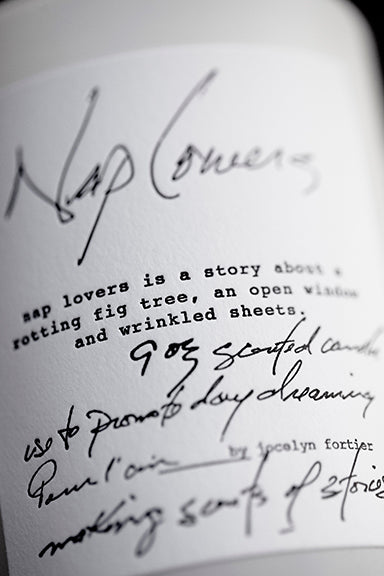 Nap Lovers
nap lovers is a story about a
rotting fig tree, an open window
and wrinkled sheets.
9 oz scented candle
use to promote day dreaming
by jocelyn fortier
making scents of stories